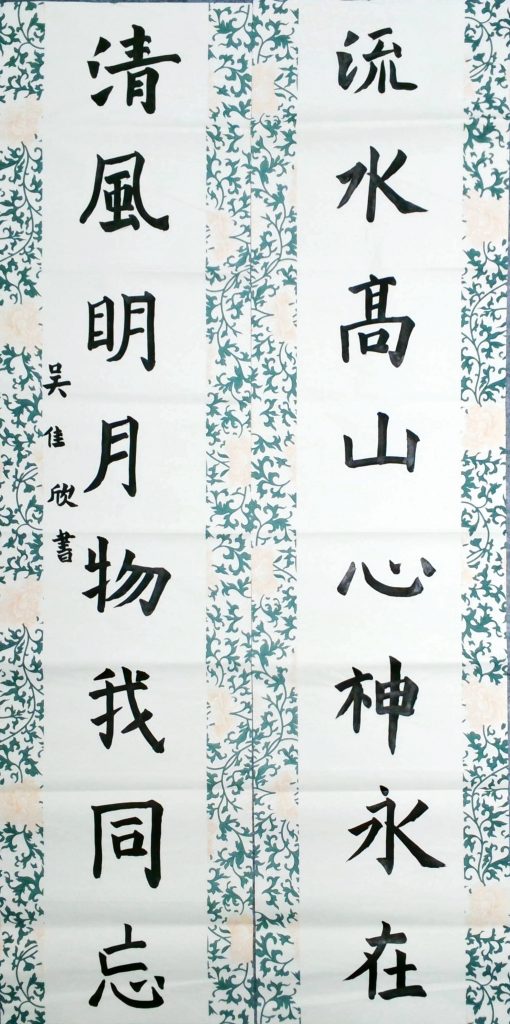 流水髙山心神永在
清風明月物我同忘
吴佳欣書